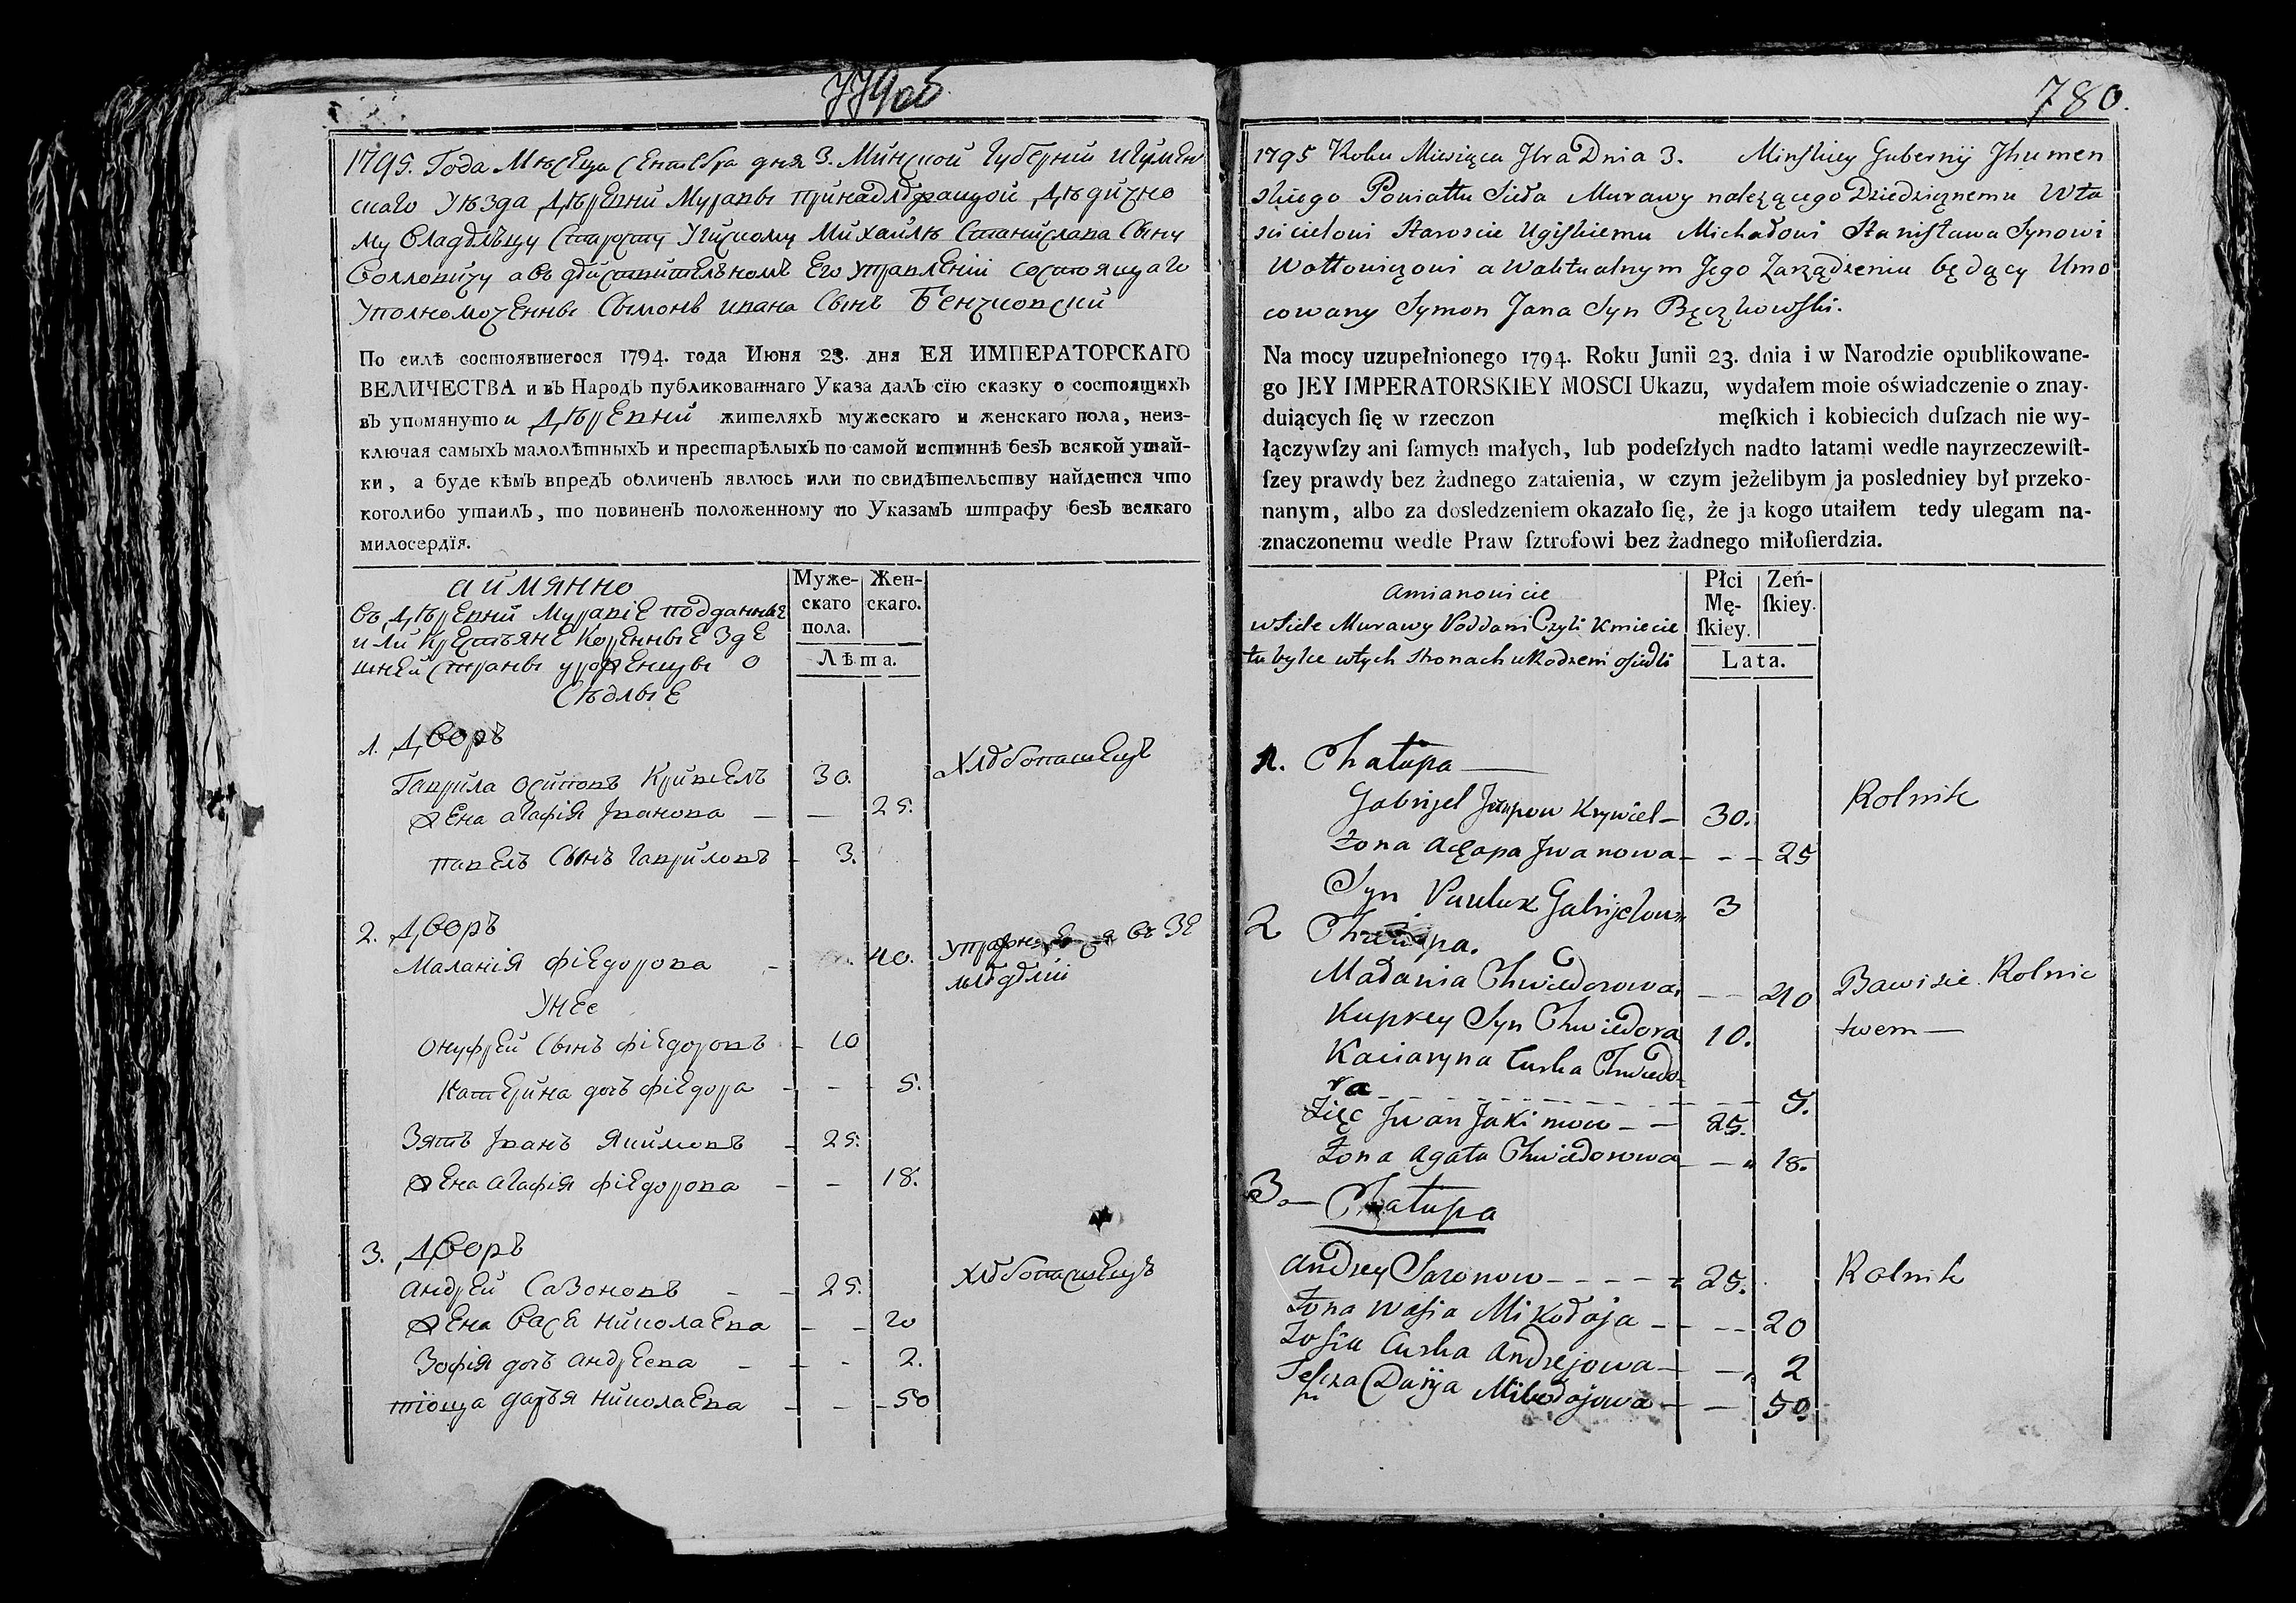 779об
1795. Года Мѣсеца Сентебра дня 3. Минской Губернии Игумен
скаго Уѣзда Дѣревни Муравы принадлѣжащой Дѣдично
му Владѣльцу Старосту Угискому Михайлѣ Станислава Сыну
Воллович​у а въ дѣйствительномъ Его управленіи состоящаго
Уполномоченны Сымонъ Ивана Сынъ Бенчковски
По силѣ состоявшегося 1794. года Июня 23. дня ЕЯ ИМПЕРАТОРСКАГО
ВЕЛИЧЕСТВА и въ Народъ публикованнаго Указа далъ сїю сказку о состоящихъ
въ упомянутои Дѣревни жителяхъ мужескаго и женскаго пола, неиз-
ключая самыхъ малолѣтныхъ и престарѣлыхъ по самой истиннѣ безъ всякой утай-
ки, а буде кѣмъ впредъ обличенъ явлюсь или по свидѣтельству найдется что
коголибо утаилъ, то повиненъ положенному по Указамъ штрафу безъ всякаго
милосердїя.
аимянно
Муже-
скаго
пола.
Жен-
скаго.
Лѣта.
въ Дѣревни Муравіе подданные
или крестьяне коренные зде
шней страны уроженцы о
сѣдлые
1. Дворъ
Гаврила Осиповъ Кривель 30. Хлѣбопашецъ
Жена Агафія Іванова — — 25.
Павелъ Сынъ Гавриловъ - 3.
2. Дворъ
Маланія Фіедорова - 40. въ зе
млѣдѣліи
У нее
Онуфрей Сынъ Фіедоровъ - 10
Катерина дочъ Фіедора - - 5.
Зять Іванъ Якимовъ - 25.
Жена Агафія Фіедорова - - 18.
3. Дворъ
Андрей Сазоновъ - - 25. Хлѣбопашецъ
Жена Вася Николаева - - 20
Зофія дочъ Андреева - - - 2.
тіоща Даръя Николаева - - - 50
780.
1795 Roku Miesiąca 7bra Dnia 3. Minſkiey Gubernij Jhumen
skiego Powiattu Sieła Murawy nalezącego Dziedzicznemu Wła
scicielowi Staroscie Ugiſkiemu Michałowi Staniſława Synowi
Wołłowiczowi a w aktualnym Jego Zarządzeniu będący Umo
cowany Symon Jana Syn Bęczkowſki.
Na mocy uzupełnionego 1794. Roku Junii 23. dnia i w Narodzie opublikowane-
go JEY IMPERATORSKIEY MOSCI Ukazu, wydałem moie oświadczenie o znay-
duiących ſię w rzeczon męſkich i kobiecich duſzach nie wy-
łączywſzy ani ſamych małych, lub podeſzłych nadto latami wedle nayrzeczewiſt-
ſzey prawdy bez żadnego zataienia, w czym jeżelibym ja posledniey był przeko-
nanym, albo za dosledzeniem okazało ſię, że ja kogo utaiłem tedy ulegam na-
znaczonemu wedle Praw ſztrofowi bez żadnego miłoſierdzia.
amianowicie
Płci
Mę-
ſkiey.
Zeń-
ſkiey.
Lata.
w Siele Murawy Poddani Czyli Kmiecie
tu bylce w tych stronach urodzeni osiedli
1. Chałupa —
Gabryel Krywiel — 30. Rolnik
Żona Iwanowa — - - 25
Syn Pauluk Gabryelow 3
2 Chałupa.
Małania Chwiedorowa — — 40 Bawi sie Rolnic
Kuprey Syn Chwiedora 10. twem —
Kaciaryna Curka Chwiedo-
ra - - - 5.
Zięć Jwan Jakimow — — 25.
Żona Agata Chwiedorowa — — 18.
3. — Chałupa
Andrey Sazonow - - - - - 25. Rolnik
Żona Wasia Mikołaja - - - - 20
Zosia Curka Andrejowa — — 2
Teſzcza Darya Mikołajowa — — 50.